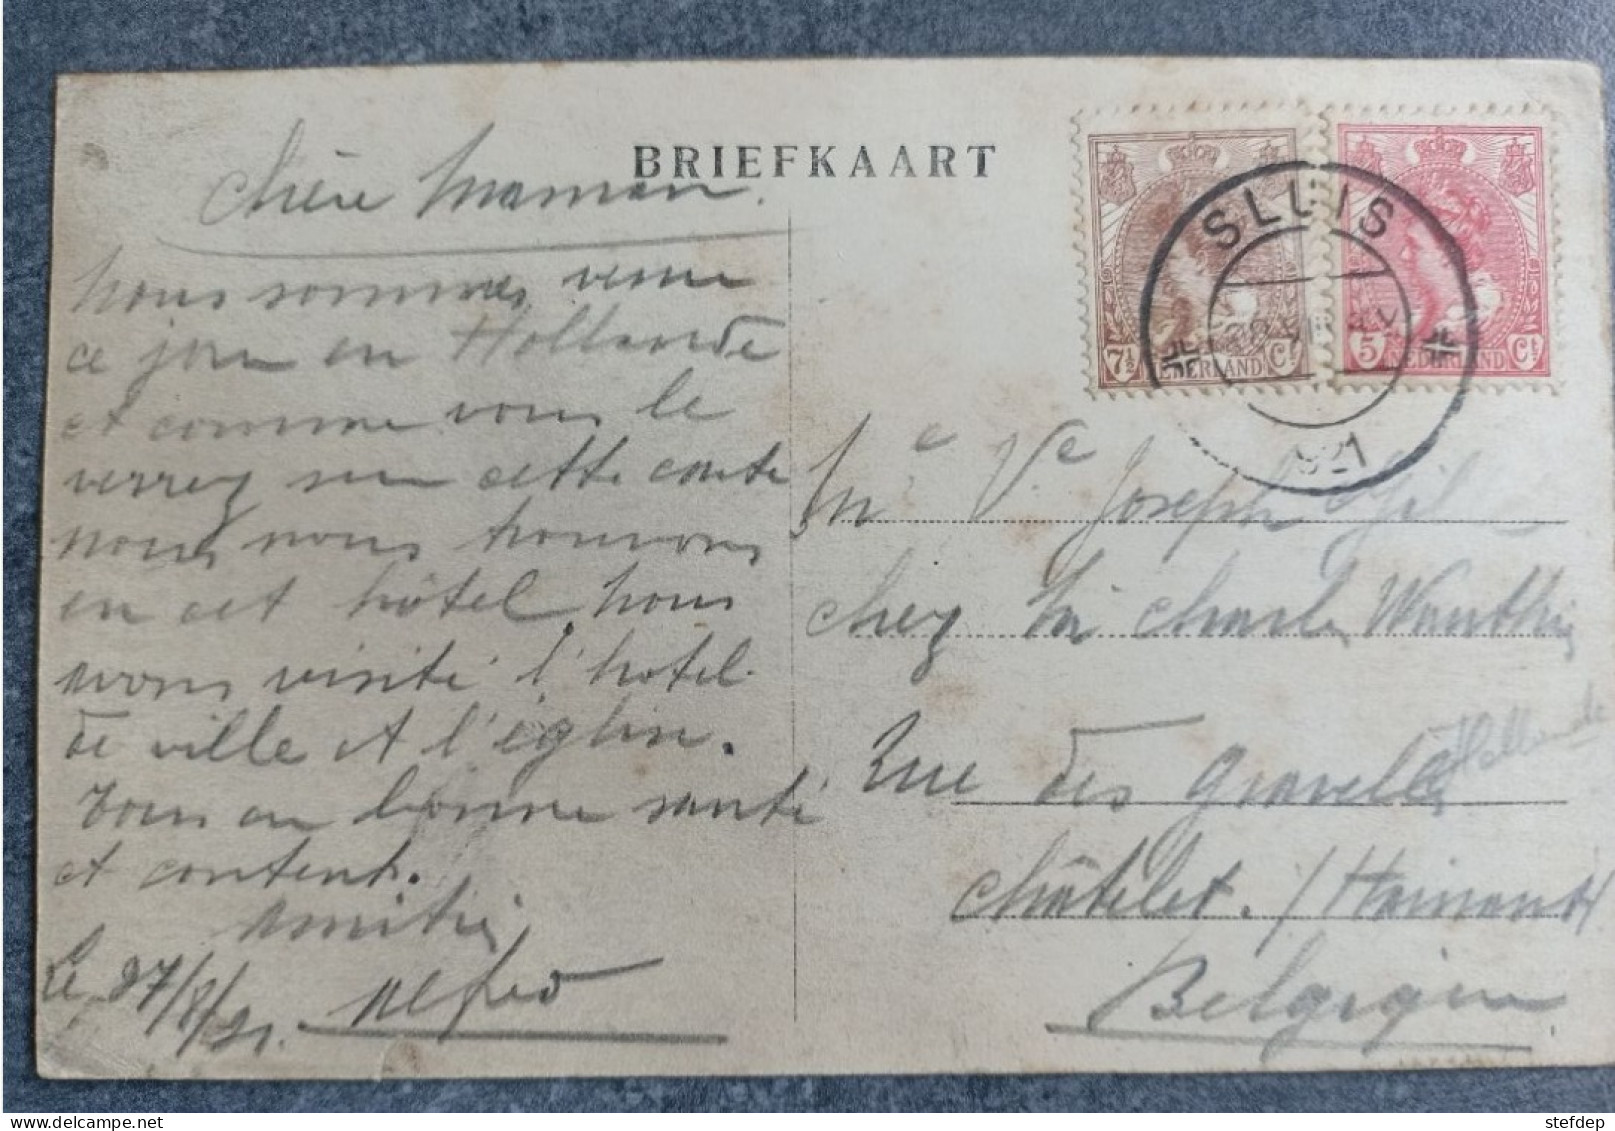 BRIEFKAART
chère Maman.
Nous sommes venu
ce jour en Hollande
et comme vous le
verrez sur cette carte
nous nous trouvons
en cet hôtel, nous
avons visité l'hotel
de ville et l'église.
Tous en bonne santé
et content.
Amitiés
Le 27/8/21. Alfred
7½ NEDERLAND Ct
5 NEDERLAND Ct
SLUIS
921
Me Ve Joseph Gil
chez Mr Charles Wauthier
Rue des Gravelles
Hollande
Châtelet. / Hainaut
Belgique
stefdep